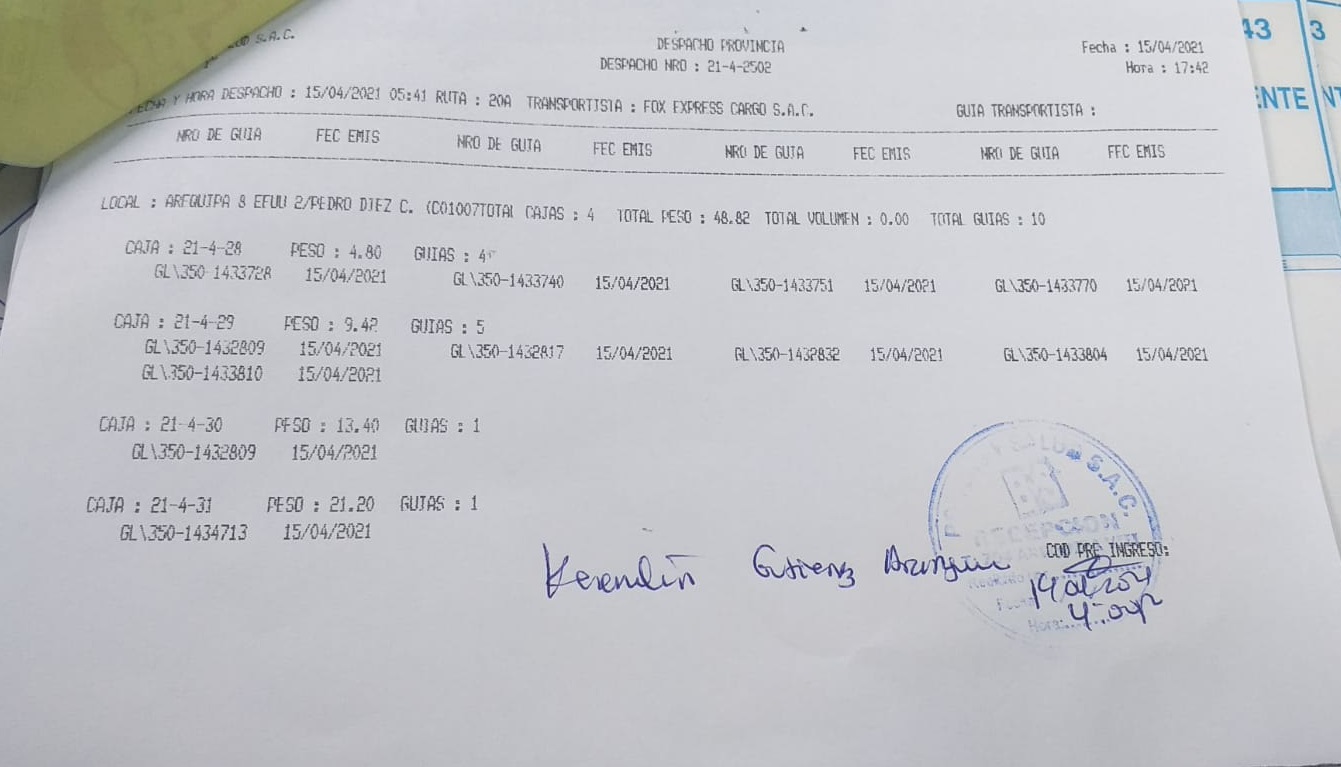 S.A.C.
DESPACHO PROVINCIA
Fecha : 15/04/2021
DESPACHO NRO : 21-4-2502
Hora : 17:42
Y HORA DESPACHO : 15/04/2021 05:41 RUTA : 20A TRANSPORTISTA : FOX EXPRESS CARGO S.A.C. GUIA TRANSPORTISTA :
NRO DE GUIA FEC EMIS NRO DE GUIA FEC EMIS NRO DE GUIA FEC EMIS NRO DE GUIA FEC EMIS
LOCAL : AREQUIPA 8 EEUU 2/PEDRO DIEZ C. (C01007TOTAL CAJAS : 4 TOTAL PESO : 48.82 TOTAL VOLUMEN : 0.00 TOTAL GUIAS : 10
CAJA : 21-4-28 PESO : 4.80 GUIAS : 4
GL\350-1433728 15/04/2021 GL\350-1433740 15/04/2021 GL\350-1433751 15/04/2021 GL\350-1433770 15/04/2021
CAJA : 21-4-29 PESO : 9.42 GUIAS : 5
GL\350-1432809 15/04/2021 GL\350-1432817 15/04/2021 GL\350-1432832 15/04/2021 GL\350-1433804 15/04/2021
GL\350-1433810 15/04/2021
CAJA : 21-4-30 PESO : 13.40 GUIAS : 1
GL\350-1432809 15/04/2021
CAJA : 21-4-31 PESO : 21.20 GUIAS : 1
GL\350-1434713 15/04/2021
SALUD S.A.C.
RECEPCION
COD PRE INGRESO:
Hora:
43 3
ENTE